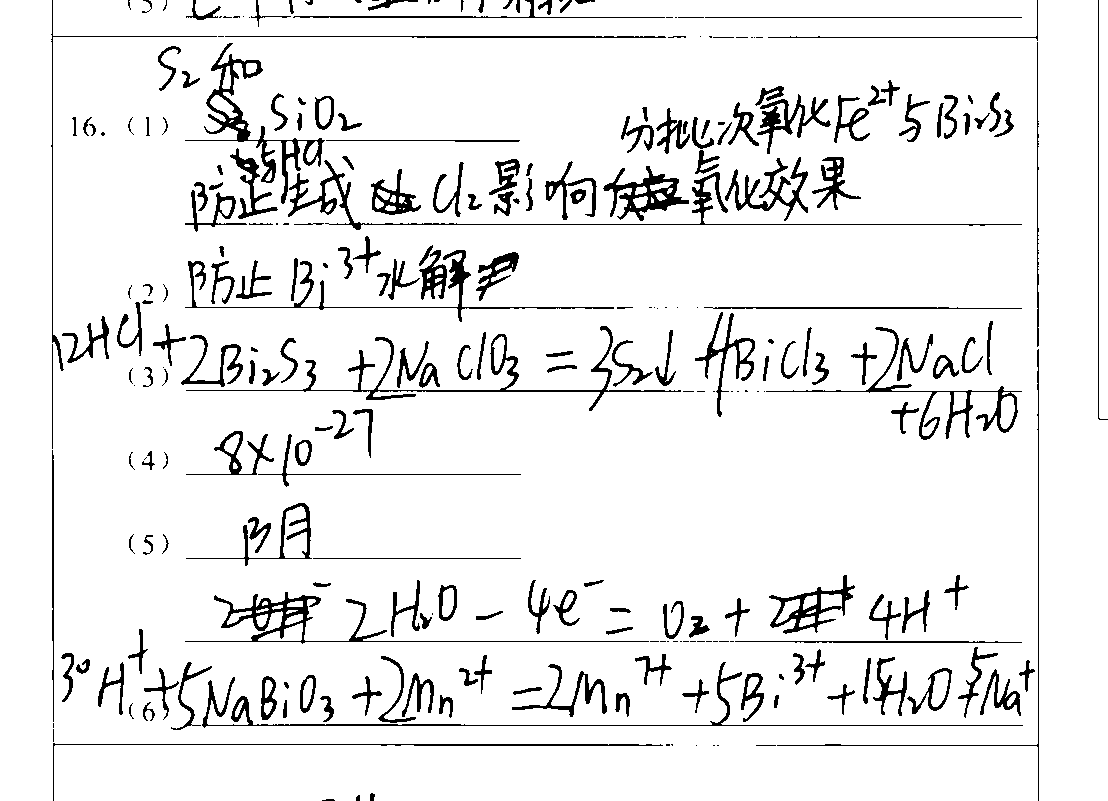 (5)
S₂和
16.(1) SiO₂
分批次氧化Fe²⁺与Bi₂S₃
与HCl
防止生成Cl₂影响氧化效果
(2) 防止Bi³⁺水解
12HCl+
(3) 2Bi₂S₃+2NaClO₃=3S₂↓+4BiCl₃+2NaCl
+6H₂O
(4) 8×10⁻²⁷
(5) 阴
2H₂O-4e⁻=O₂+4H⁺
30H⁺+
(6) 5NaBiO₃+2Mn²⁺=2Mn⁷⁺+5Bi³⁺+15H₂O+5Na⁺